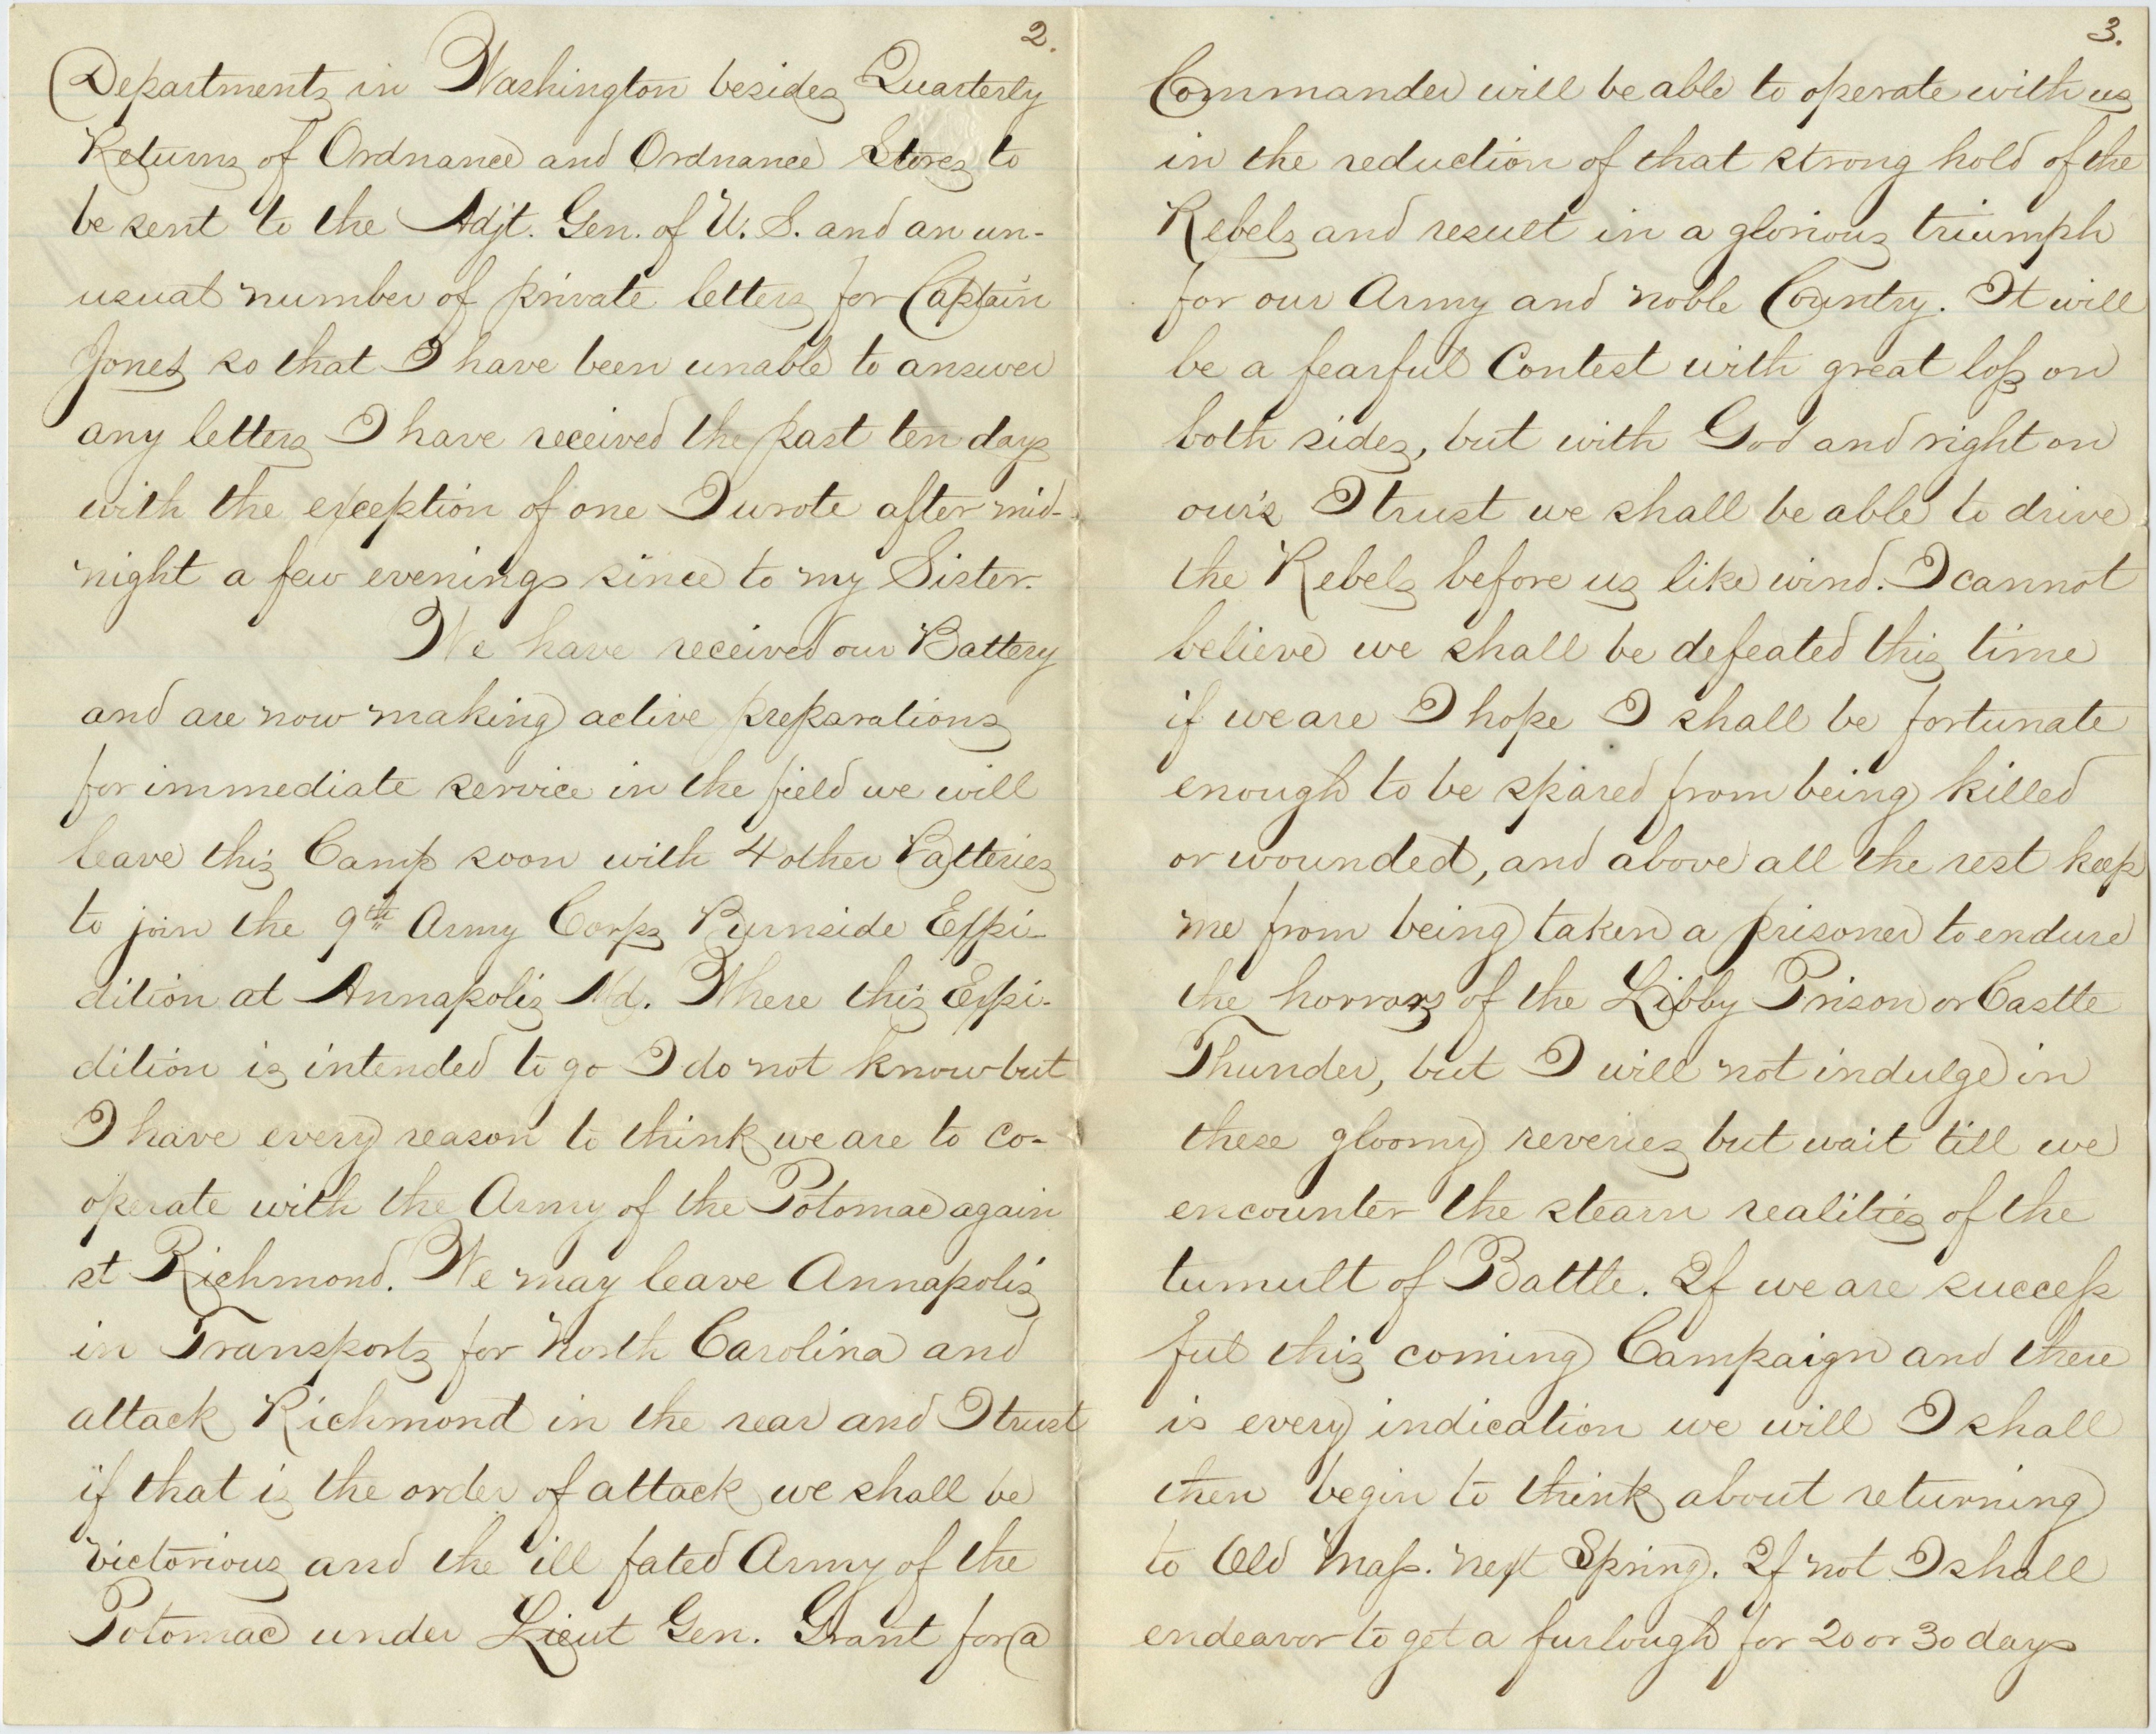 2.
Departments in Washington besides Quarterly
Returns of Ordnance and Ordnance Stores to
be sent to the Adjt. Gen. of U. S. and an un-
usual number of private letters for Captain
Jones so that I have been unable to answer
any letters I have received the past ten days
with the exception of one I wrote after mid-
night a few evenings since to my Sister.
We have received our Battery
and are now making active preparations
for immediate service in the field we will
leave this Camp soon with 4 other Batteries
to join the 9th Army Corps Burnside Expi-
dition at Annapolis Md. Where this Expi-
dition is intended to go I do not know but
I have every reason to think we are to co-
operate with the Army of the Potomac again
st Richmond. We may leave Annapolis
in Transports for North Carolina and
attack Richmond in the rear and I trust
if that is the order of attack we shall be
victorious and the ill fated Army of the
Potomac under Lieut Gen. Grant for a
3.
Commander will be able to operate with us
in the reduction of that strong hold of the
Rebels and result in a glorious triumph
for our Army and noble Country. It will
be a fearful Contest with great loss on
both sides, but with God and right on
our's I trust we shall be able to drive
the Rebels before us like wind. I cannot
believe we shall be defeated this time
if we are I hope I shall be fortunate
enough to be spared from being killed
or wounded, and above all the rest keep
me from being taken a prisoner to endure
the horrors of the Libby Prison or Castle
Thunder, but I will not indulge in
these gloomy reveries but wait till we
encounter the stearn realities of the
tumult of Battle. If we are success
ful this coming Campaign and there
is every indication we will I shall
then begin to think about returning
to Old Mass. next Spring. If not I shall
endeavor to get a furlough for 20 or 30 days